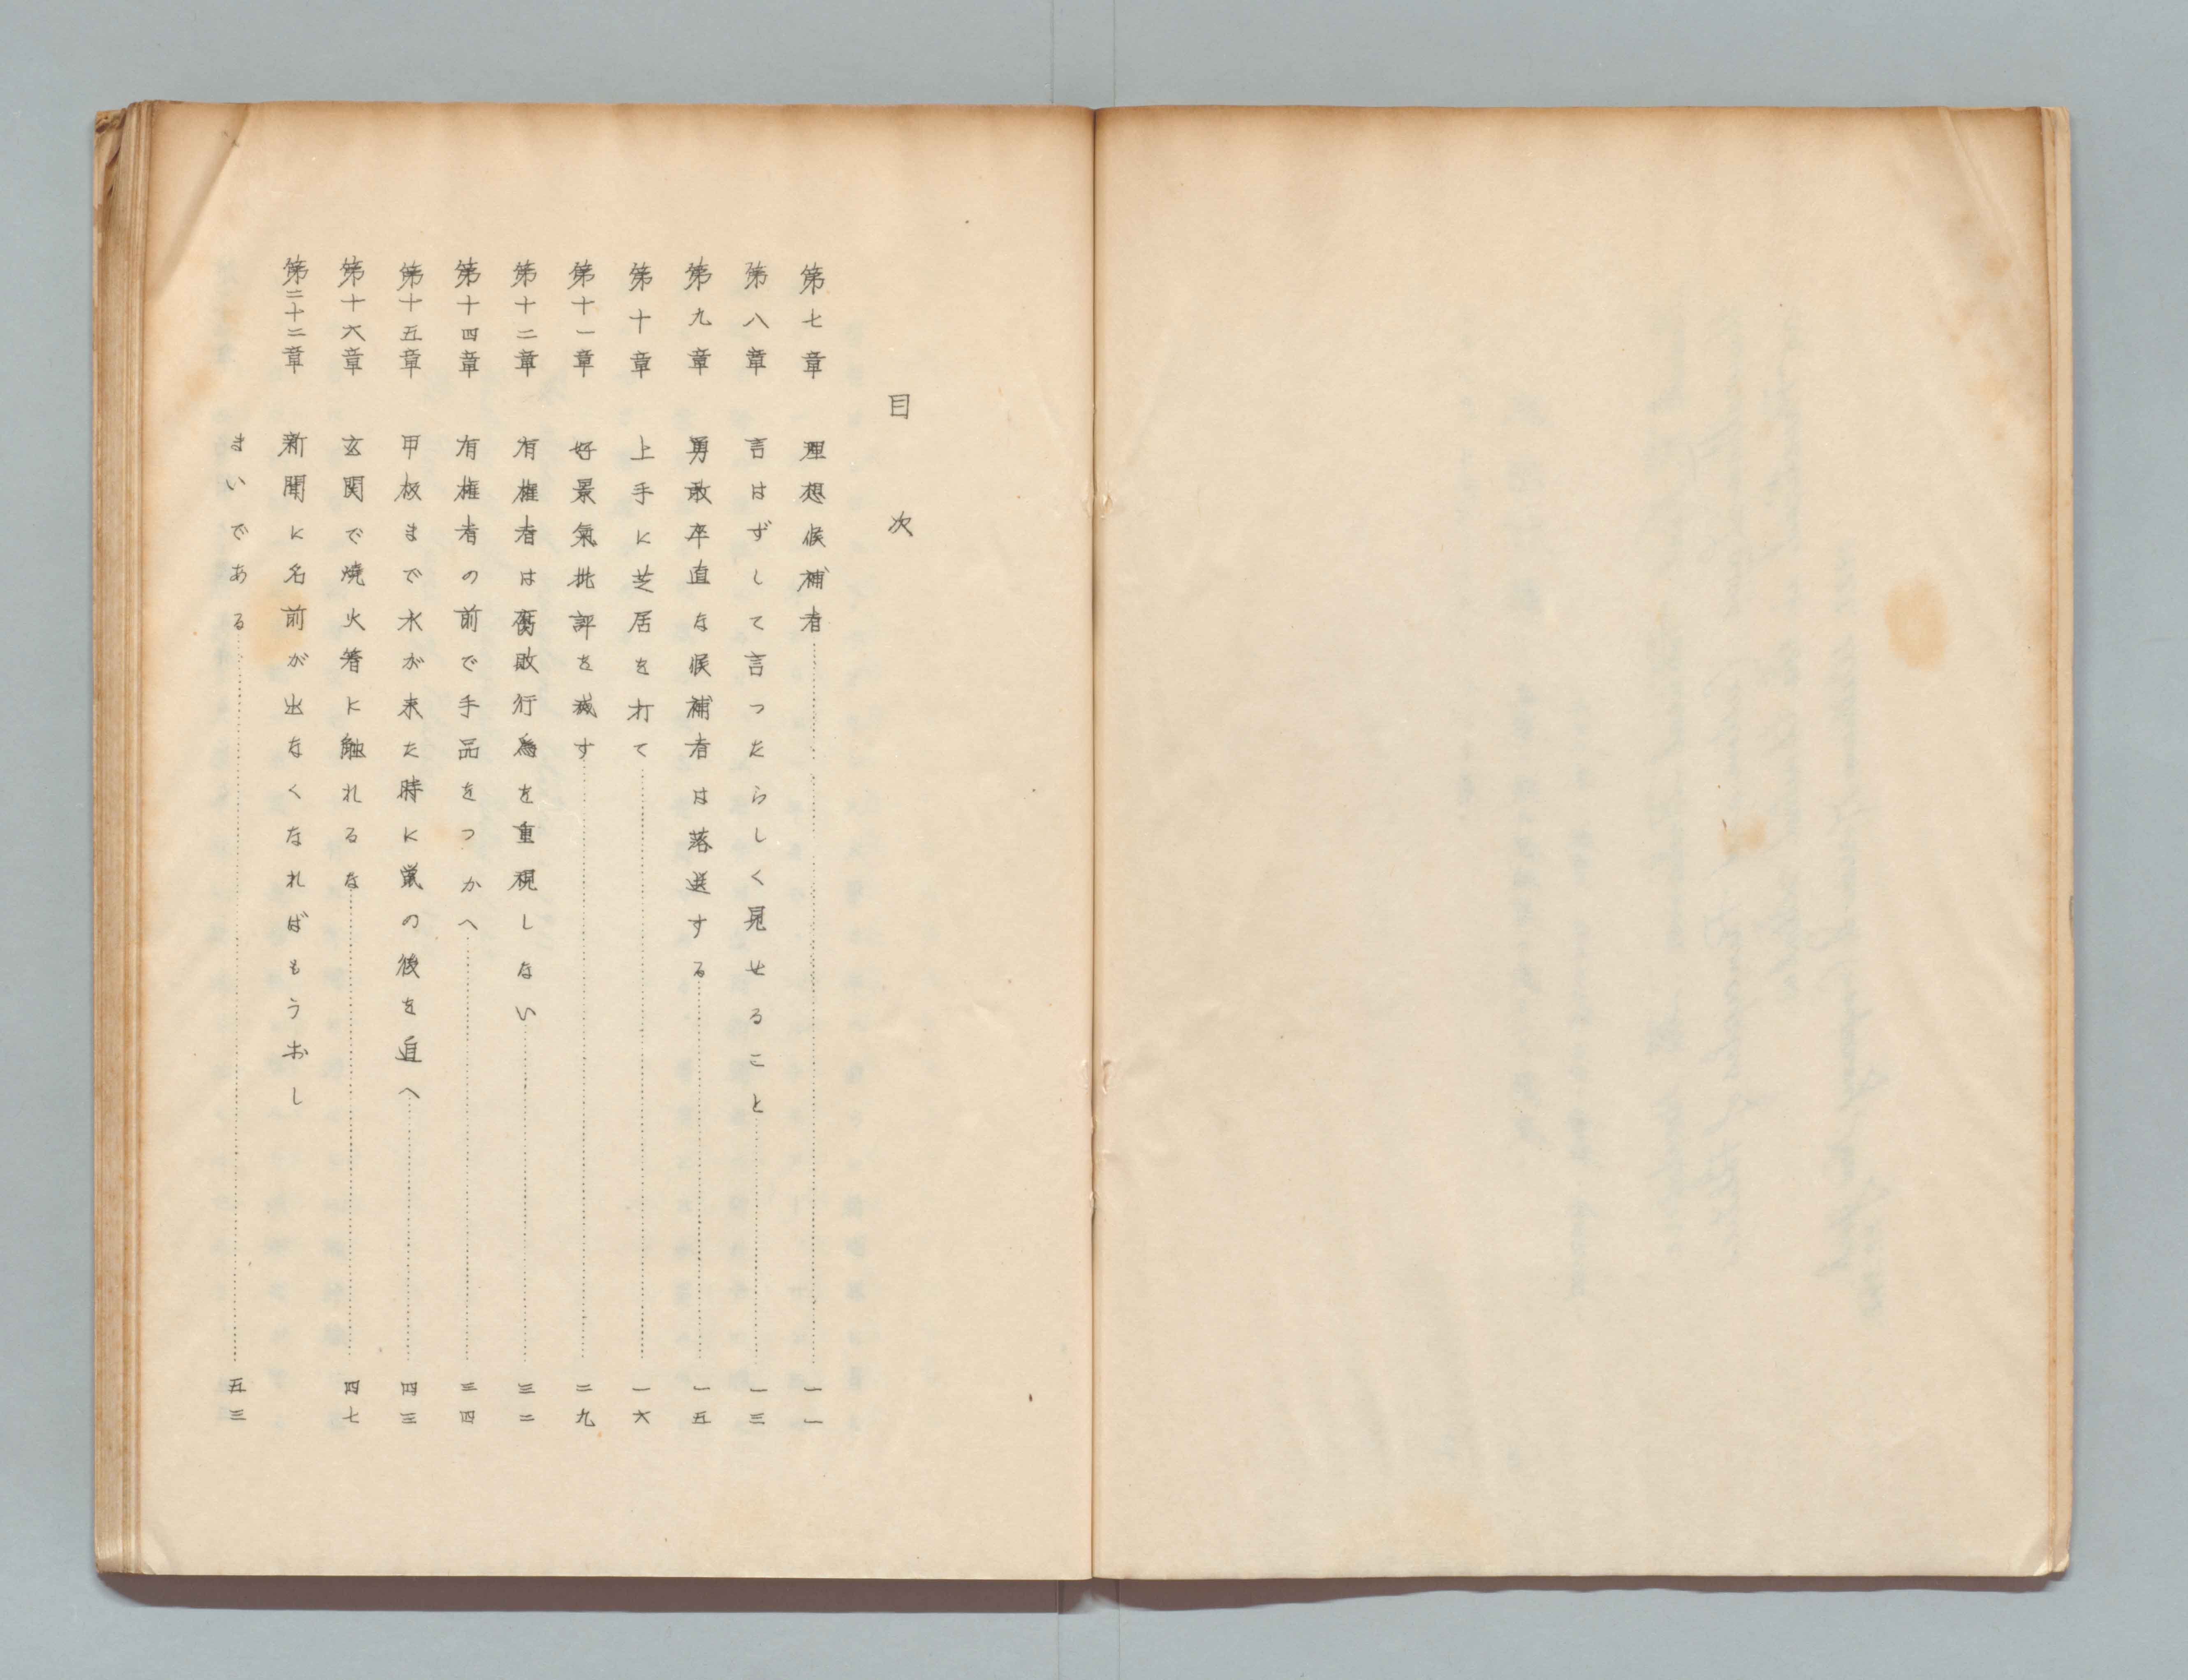 目次
第七章 理想候補者 一一
第八章 言はずして言つたらしく見せること 一三
第九章 勇敢卒直な候補者は落選する 一五
第十章 上手に芝居を打て 一六
第十一章 好景氣批評を滅す 二九
第十二章 有権者は腐敗行為を重視しない 三二
第十四章 有権者の前で手品をつかへ 三四
第十五章 甲板まで水が来た時に鼠の後を追へ 四三
第十六章 玄関で焼火箸に触れるな 四七
第二十二章 新聞に名前が出なくなればもうおし
まいである 五三